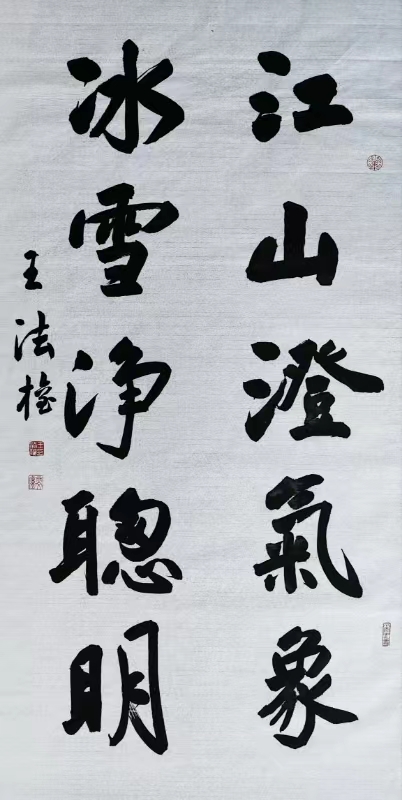 江山澄氣象
冰雪淨聰明
王法楷